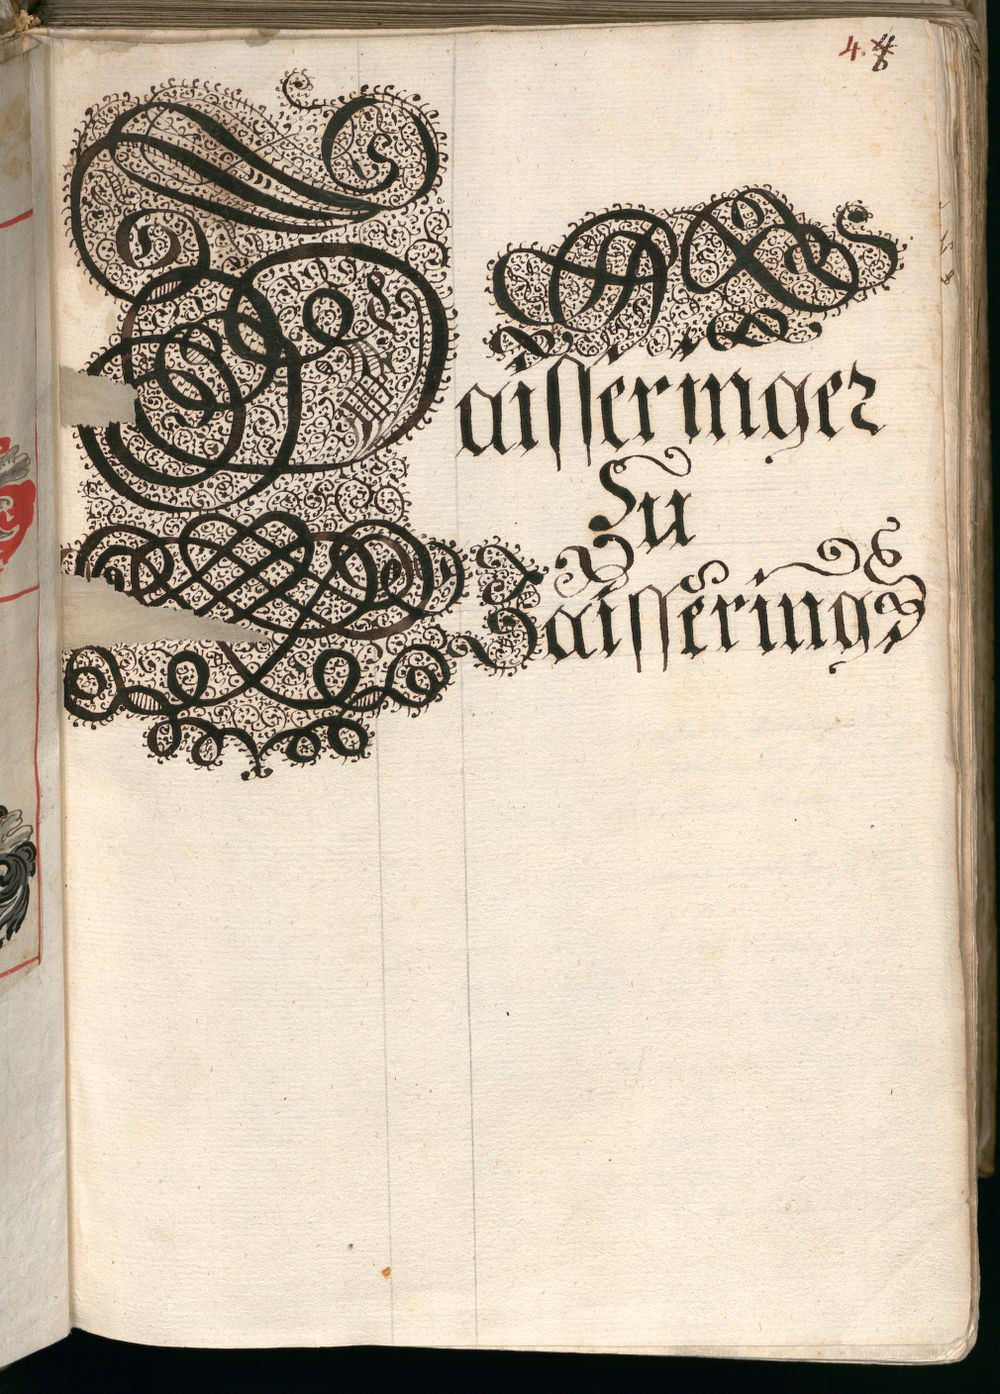 4.
Zaisseringer
Zu
Zaissering